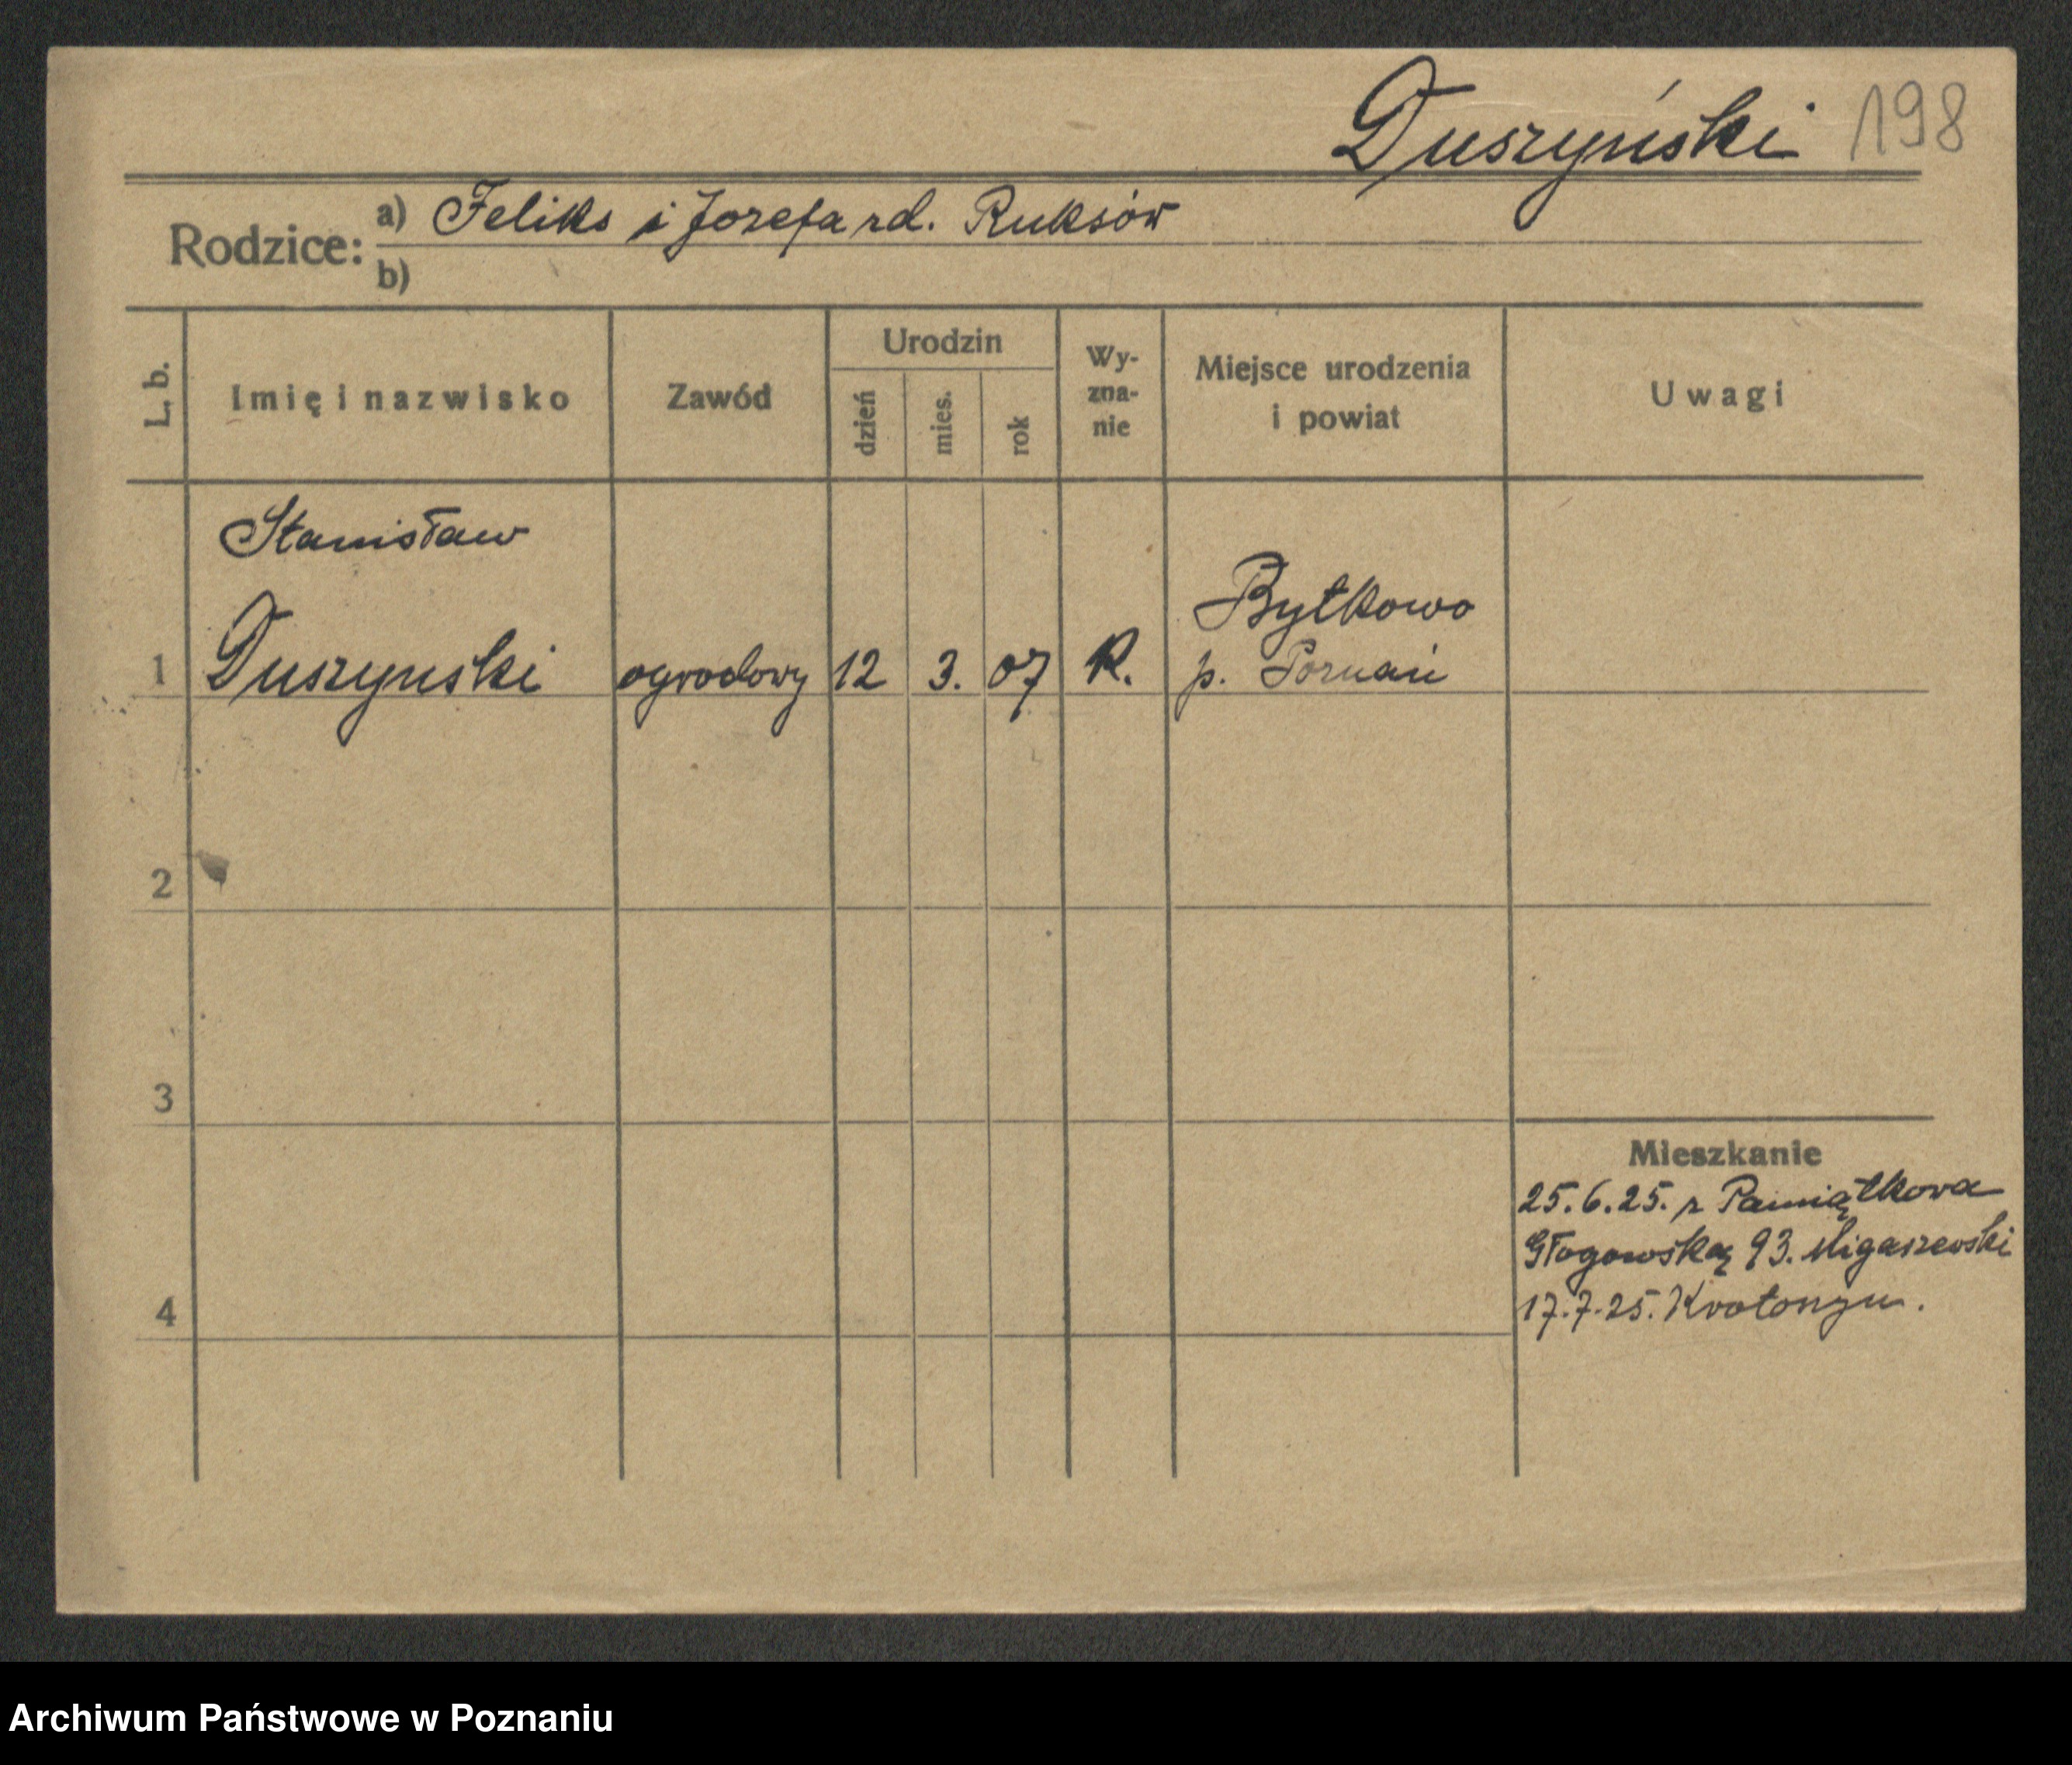 Duszyński 198
Rodzice: a) Feliks i Jozefa rd. Ruksów
b)
L. b. Imię i nazwisko Zawód Urodzin dzień mies. rok Wy-zna-nie Miejsce urodzenia i powiat Uwagi
Stanisław
Bytkowo
1 Duszynski ogrodowy 12 3. 07 R. p. Poznań
2
3
Mieszkanie
25.6.25. z Pamiątkowa
Głogowska 93. Migaszewski
4 17.7.25.
Archiwum Państwowe w Poznaniu